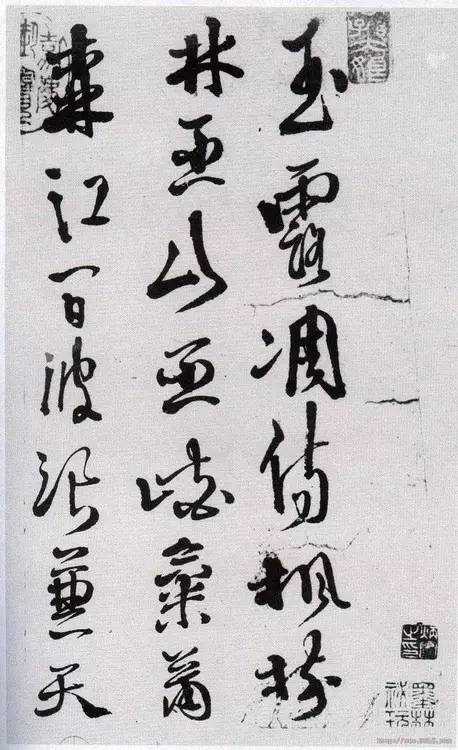 玉露凋傷楓樹
林巫山巫峽氣蕭
森江間波浪兼天
墨林
祕玩